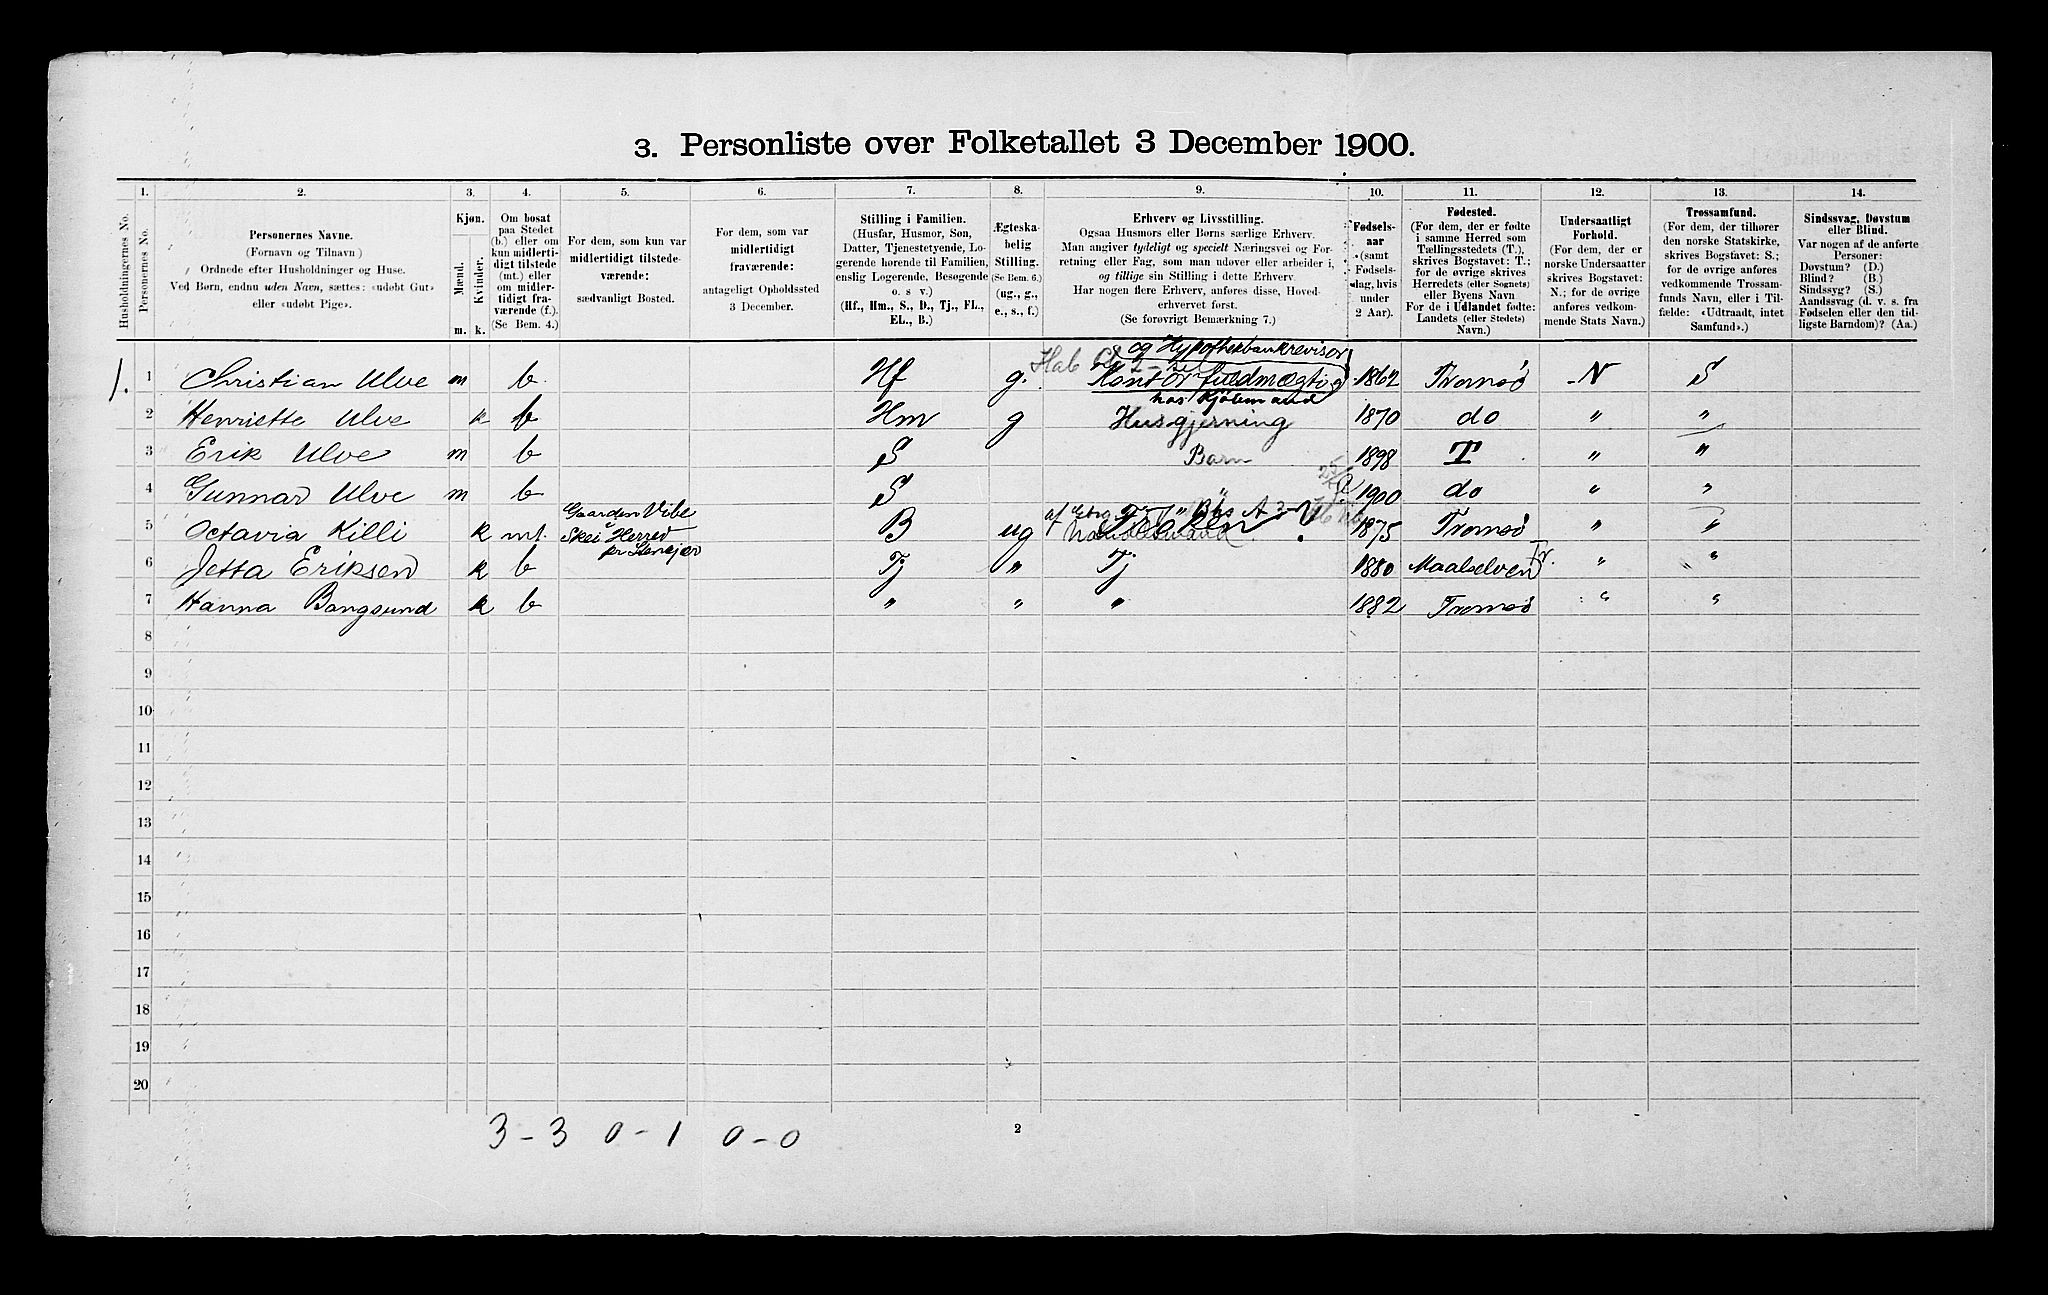 3. Personliste over Folketallet 3 December 1900.
1. 2. 3. 4. 5. 6. 7. 8. 9. 10. 11. 12. 13. 14.
Husholdningernes No.
Personernes No.
Personernes Navne.
(Fornavn og Tilnavn)
Ordnede efter Husholdninger og Huse.
Ved Børn, endnu uden Navn, sættes: «udøbt Gut»
eller «udøbt Pige».
Kjøn.
Mænd.
Kvinder.
m. k.
Om bosat
paa Stedet
(b.) eller om
kun midlerti-
digt tilstede
(mt.) eller
om midler-
tidigt fra-
værende (f.).
(Se Bem. 4.)
For dem, som kun var
midlertidigt tilstede-
værende:
sædvanligt Bosted.
For dem, som var
midlertidigt
fraværende:
antageligt Opholdssted
3 December.
Stilling i Familien.
(Husfar, Husmor, Søn,
Datter, Tjenestetyende, Lo-
gerende hørende til Familien,
enslig Logerende, Besøgende
o. s v.)
(Hf., Hm., S., D., Tj., FL.,
EL., B.)
Ægteska-
belig
Stilling.
(Se Bem. 6.)
(ug., g.,
e., s., f.)
Erhverv og Livsstilling.
Ogsaa Husmors eller Børns særlige Erhverv.
Man angiver tydeligt og specielt Næringsvei og For-
retning eller Fag, som man udøver eller arbeider i,
og tillige sin Stilling i dette Erhverv.
Har nogen flere Erhverv, anføres disse, Hoved-
erhvervet først.
(Se forøvrigt Bemærkning 7.)
Fødsels-
aar
(samt
Fødsels-
dag, hvis
under
2 Aar).
Fødested.
(For dem, der er fødte
i samme Herred som
Tællingsstedets (T.),
skrives Bogstavet: T.;
for de øvrige skrives
Herredets (eller Sognets)
eller Byens Navn
For de i Udlandet fødte:
Landets (eller Stedets)
Navn.)
Undersaatligt
Forhold.
(For dem, der er
norske Undersaatter
skrives Bogstavet:
N.; for de øvrige
anføres vedkom-
mende Stats Navn.)
Trossamfund.
(For dem, der tilhører
den norske Statskirke,
skrives Bogstavet: S.;
for de øvrige anføres
vedkommende Trossam-
funds Navn, eller i Til-
fælde: «Udtraadt, intet
Samfund».)
Sindssvag, Døvstum
eller Blind.
Var nogen af de anførte
Personer:
Døvstum? (D.)
Blind? (B.)
Sindssyg? (S.)
Aandssvag (d. v. s. fra
Fødselen eller den tid-
ligste Barndom)? (Aa.)
og Hypothekbankrevisor
1. 1 Christian Ulve m b. Hf g. Kontorfuldmægtig 1862 Tromsø N S
hos Kjøbmand
2 Henriette Ulve k b Hm g Husgjerning 1870 do " "
3 Erik Ulve m b S Barn 1898 T " "
4 Gunnar Ulve m b S " 1900 do " "
Gaarden Vibe
5 Octavia Killi k mt. Skei Herred B ug 1875 Tromsø " "
pr Stenkjær
6 Jetta Eriksen k b Tj " Tj 1880 Maalselven Tr. " "
7 Hanna Bangsund k b " " " 1882 Tromsø " "
8
9
10
11
12
13
14
15
16
17
18
19
20
3 - 3 0 - 1 0 - 0
2